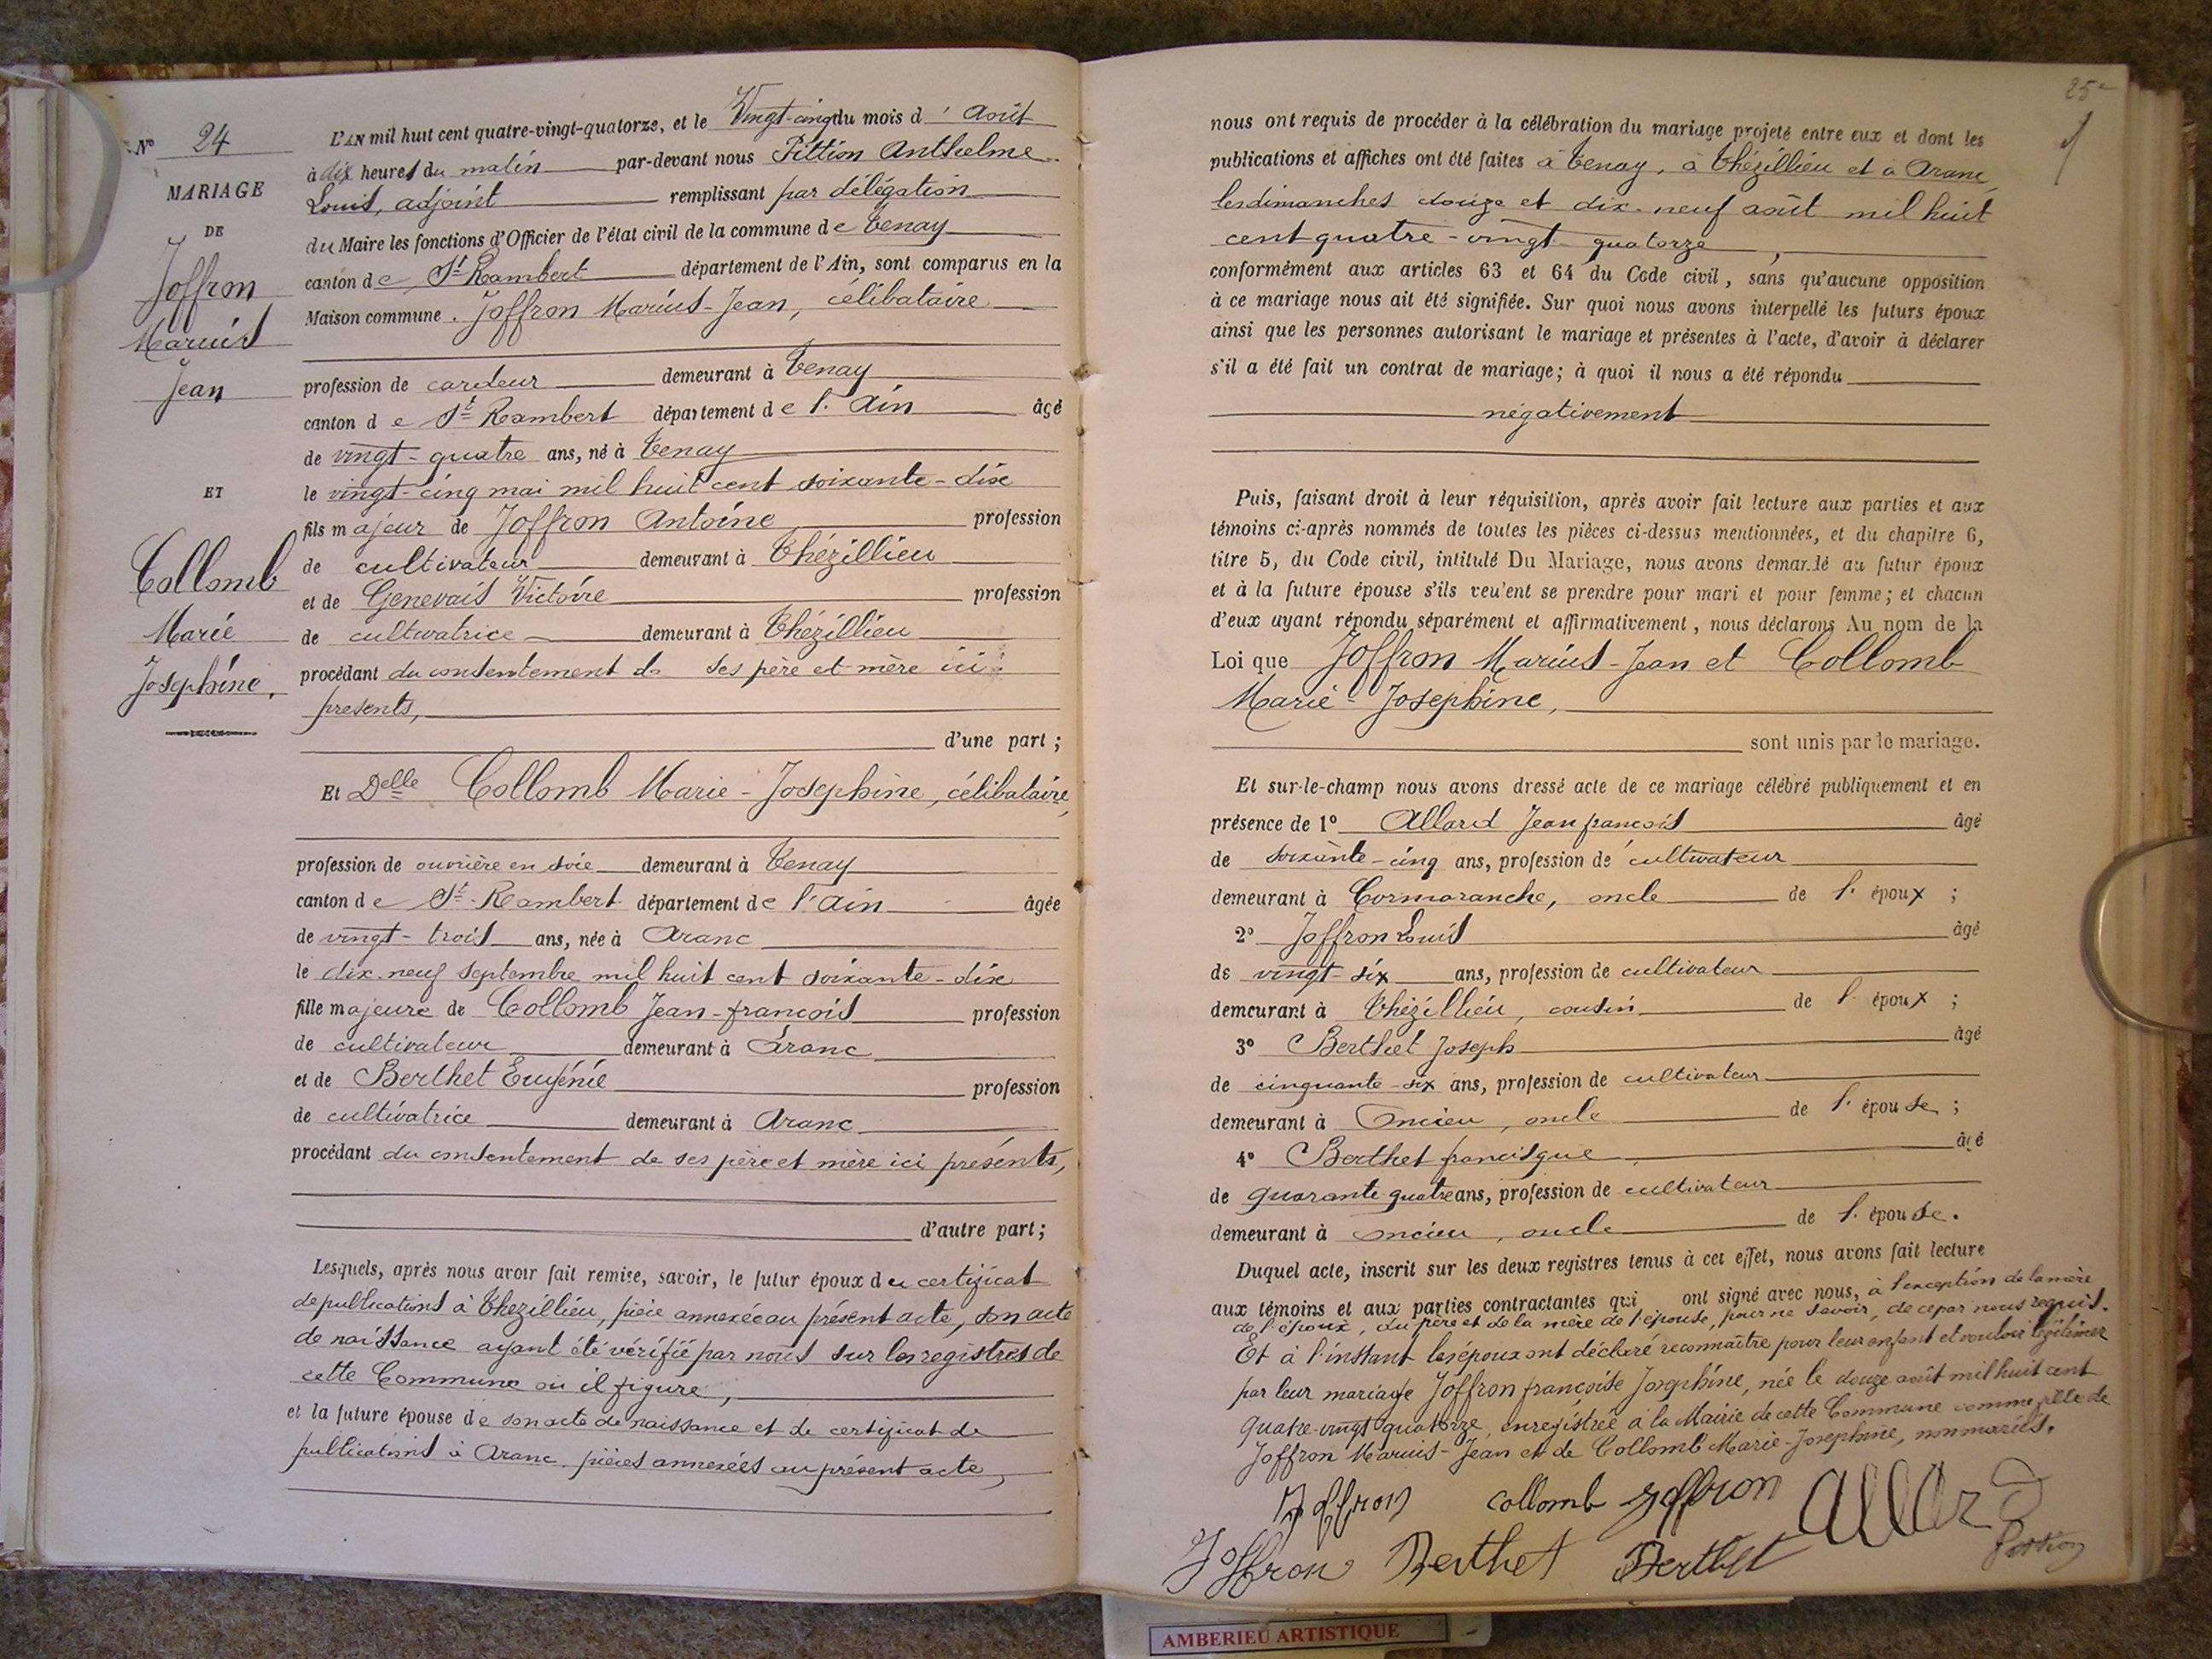 N° 24
MARIAGE
DE
Joffron
Marius
Jean
ET
Collomb
Marie
Josephine.
L'AN mil huit cent quatre-vingt-quatorze, et le Vingt-cinq du mois d'Août
à dix heures du matin par-devant nous Pittion Anthelme
Louis, adjoint remplissant par délégation
du Maire les fonctions d'Officier de l'état civil de la commune de Tenay
canton de St Rambert département de l'Ain, sont comparus en la
Maison commune. Joffron Marius-Jean, célibataire
profession de cardeur demeurant à Tenay
canton de St Rambert département de l'Ain âgé
de vingt-quatre ans, né à Tenay
le vingt-cinq mai mil huit cent soixante-dix
fils majeur de Joffron Antoine, profession
de cultivateur demeurant à Thézillieu
et de Genevais Victoire profession
de cultivatrice demeurant à Thézillieu
procédant du consentement de ses père et mère ici
presents,
d'une part ;
Et Delle Collomb Marie-Josephine, célibataire,
profession de ouvrière en soie demeurant à Tenay
canton de St-Rambert département de l'Ain âgée
de vingt-trois ans, née à Aranc
le dix-neuf septembre mil huit cent soixante-dix
fille majeure de Collomb Jean-françois profession
de cultivateur demeurant à Aranc
et de Berthet Eugénie profession
de cultivatrice demeurant à Aranc
procédant du consentement de ses père et mère ici présents,
d'autre part ;
Lesquels, après nous avoir fait remise, savoir, le futur époux du certificat
de publications à Thezillieu, pièce annexée au présent acte, son acte
de naissance ayant été vérifié par nous sur les registres de
cette Commune où il figure,
et la future épouse de son acte de naissance et de certificat de
publications à Aranc, pièces annexées au présent acte,
25e
nous ont requis de procéder à la célébration du mariage projeté entre eux et dont les
publications et affiches ont été faites à Tenay, à Thézillieu et à Aranc,
les dimanches douze et dix-neuf août mil huit
cent quatre-vingt-quatorze,
conformément aux articles 63 et 64 du Code civil, sans qu'aucune opposition
à ce mariage nous ait été signifiée. Sur quoi nous avons interpellé les futurs époux
ainsi que les personnes autorisant le mariage et présentes à l'acte, d'avoir à déclarer
s'il a été fait un contrat de mariage; à quoi il nous a été répondu
négativement
Puis, faisant droit à leur réquisition, après avoir fait lecture aux parties et aux
témoins ci-après nommés de toutes les pièces ci-dessus mentionnées, et du chapitre 6,
titre 5, du Code civil, intitulé Du Mariage, nous avons demandé au futur époux
et à la future épouse s'ils veulent se prendre pour mari et pour femme; et chacun
d'eux ayant répondu séparément et affirmativement, nous déclarons Au nom de la
Loi que Joffron Marius-Jean et Collomb
Marie-Josephine,
sont unis par le mariage.
Et sur-le-champ nous avons dressé acte de ce mariage célébré publiquement et en
présence de 1° Allard Jean françois âgé
de soixante-cinq ans, profession de cultivateur
demeurant à Cormaranche, oncle de l'époux ;
2° Joffron Louis âgé
de vingt-six ans, profession de cultivateur
demeurant à Thézillieu, cousin de l'époux ;
3° Berthet Joseph âgé
de cinquante-six ans, profession de cultivateur
demeurant à Oncieu, oncle de l'épouse ;
4° Berthet francisque âgé
de quarante quatre ans, profession de cultivateur
demeurant à oncieu, oncle de l'épouse.
Duquel acte, inscrit sur les deux registres tenus à cet effet, nous avons fait lecture
aux témoins et aux parties contractantes qui ont signé avec nous, à l'exception de la mère
de l'époux, du père et de la mère de l'épouse, pour ne savoir, de ce par nous requis.
Et à l'instant les époux ont déclaré reconnaître pour leur enfant et vouloir légitimer
par leur mariage Joffron françoise Josephine, née le douze août mil huit cent
quatre-vingt quatorze, enregistrée à la Mairie de cette Commune comme fille de
Joffron Marius-Jean et de Collomb Marie-Josephine, non mariés.
Joffron collomb Joffron Allard
Joffron Berthet Berthet Pittion
AMBERIEU ARTISTIQUE